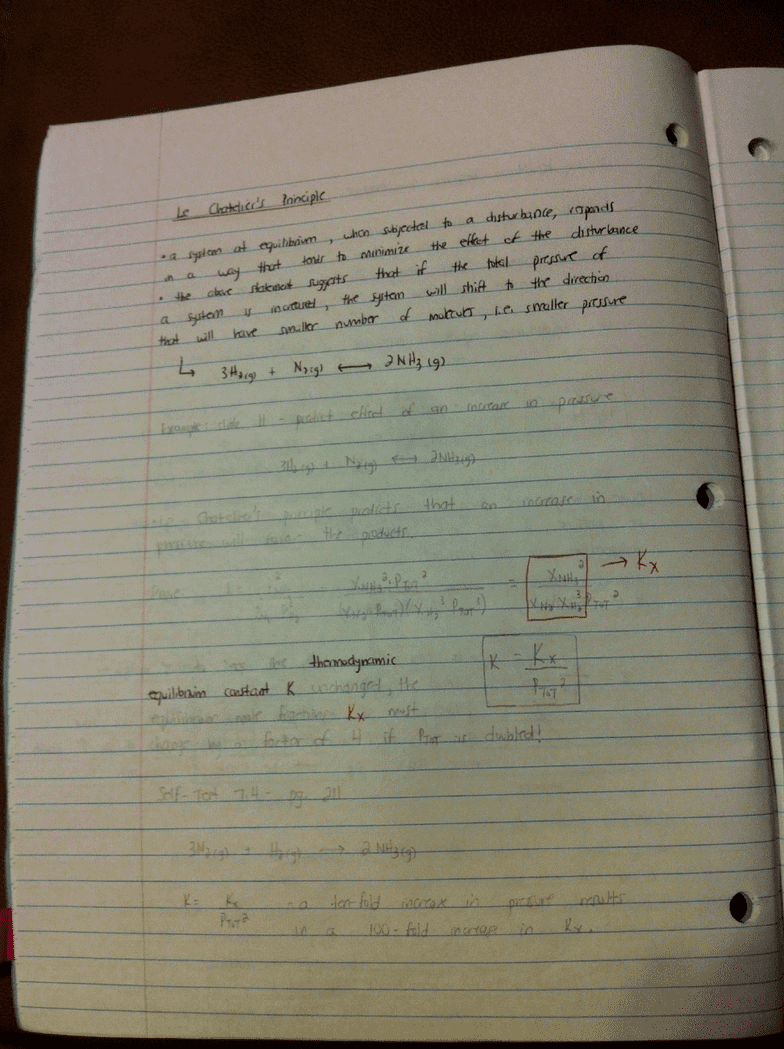 Le Chatelier's Principle
• a system at equilibrium, when subjected to a disturbance, responds
in a way that tends to minimize the effect of the disturbance
• the above statement suggests that if the total pressure of
a system is increased, the system will shift to the direction
that will have smaller number of molecules, i.e. smaller pressure
↳ 3H₂(g) + N₂(g) ⟷ 2NH₃(g)
Example: slide 11 - predict effect of an increase in pressure
3H₂(g) + N₂(g) ⟷ 2NH₃(g)
Le Chatelier's principle predicts that an increase in
pressure will favor the products.
K = X_NH₃² · P_TOT² / (X_N₂ · P_TOT)(X_H₂³ P_TOT³) = X_NH₃² / X_N₂ X_H₂³ P_TOT² → Kx
the thermodynamic K = Kx / P_TOT²
equilibrium constant K unchanged, the
equilibrium mole fractions Kx must
change by a factor of 4 if P_TOT is doubled!
Self-Test 7.4 - pg. 211
3N₂(g) + H₂(g) ⟷ 2NH₃(g)
K = Kx / P_TOT² - a ten-fold increase in pressure results
in a 100-fold increase in Kx.